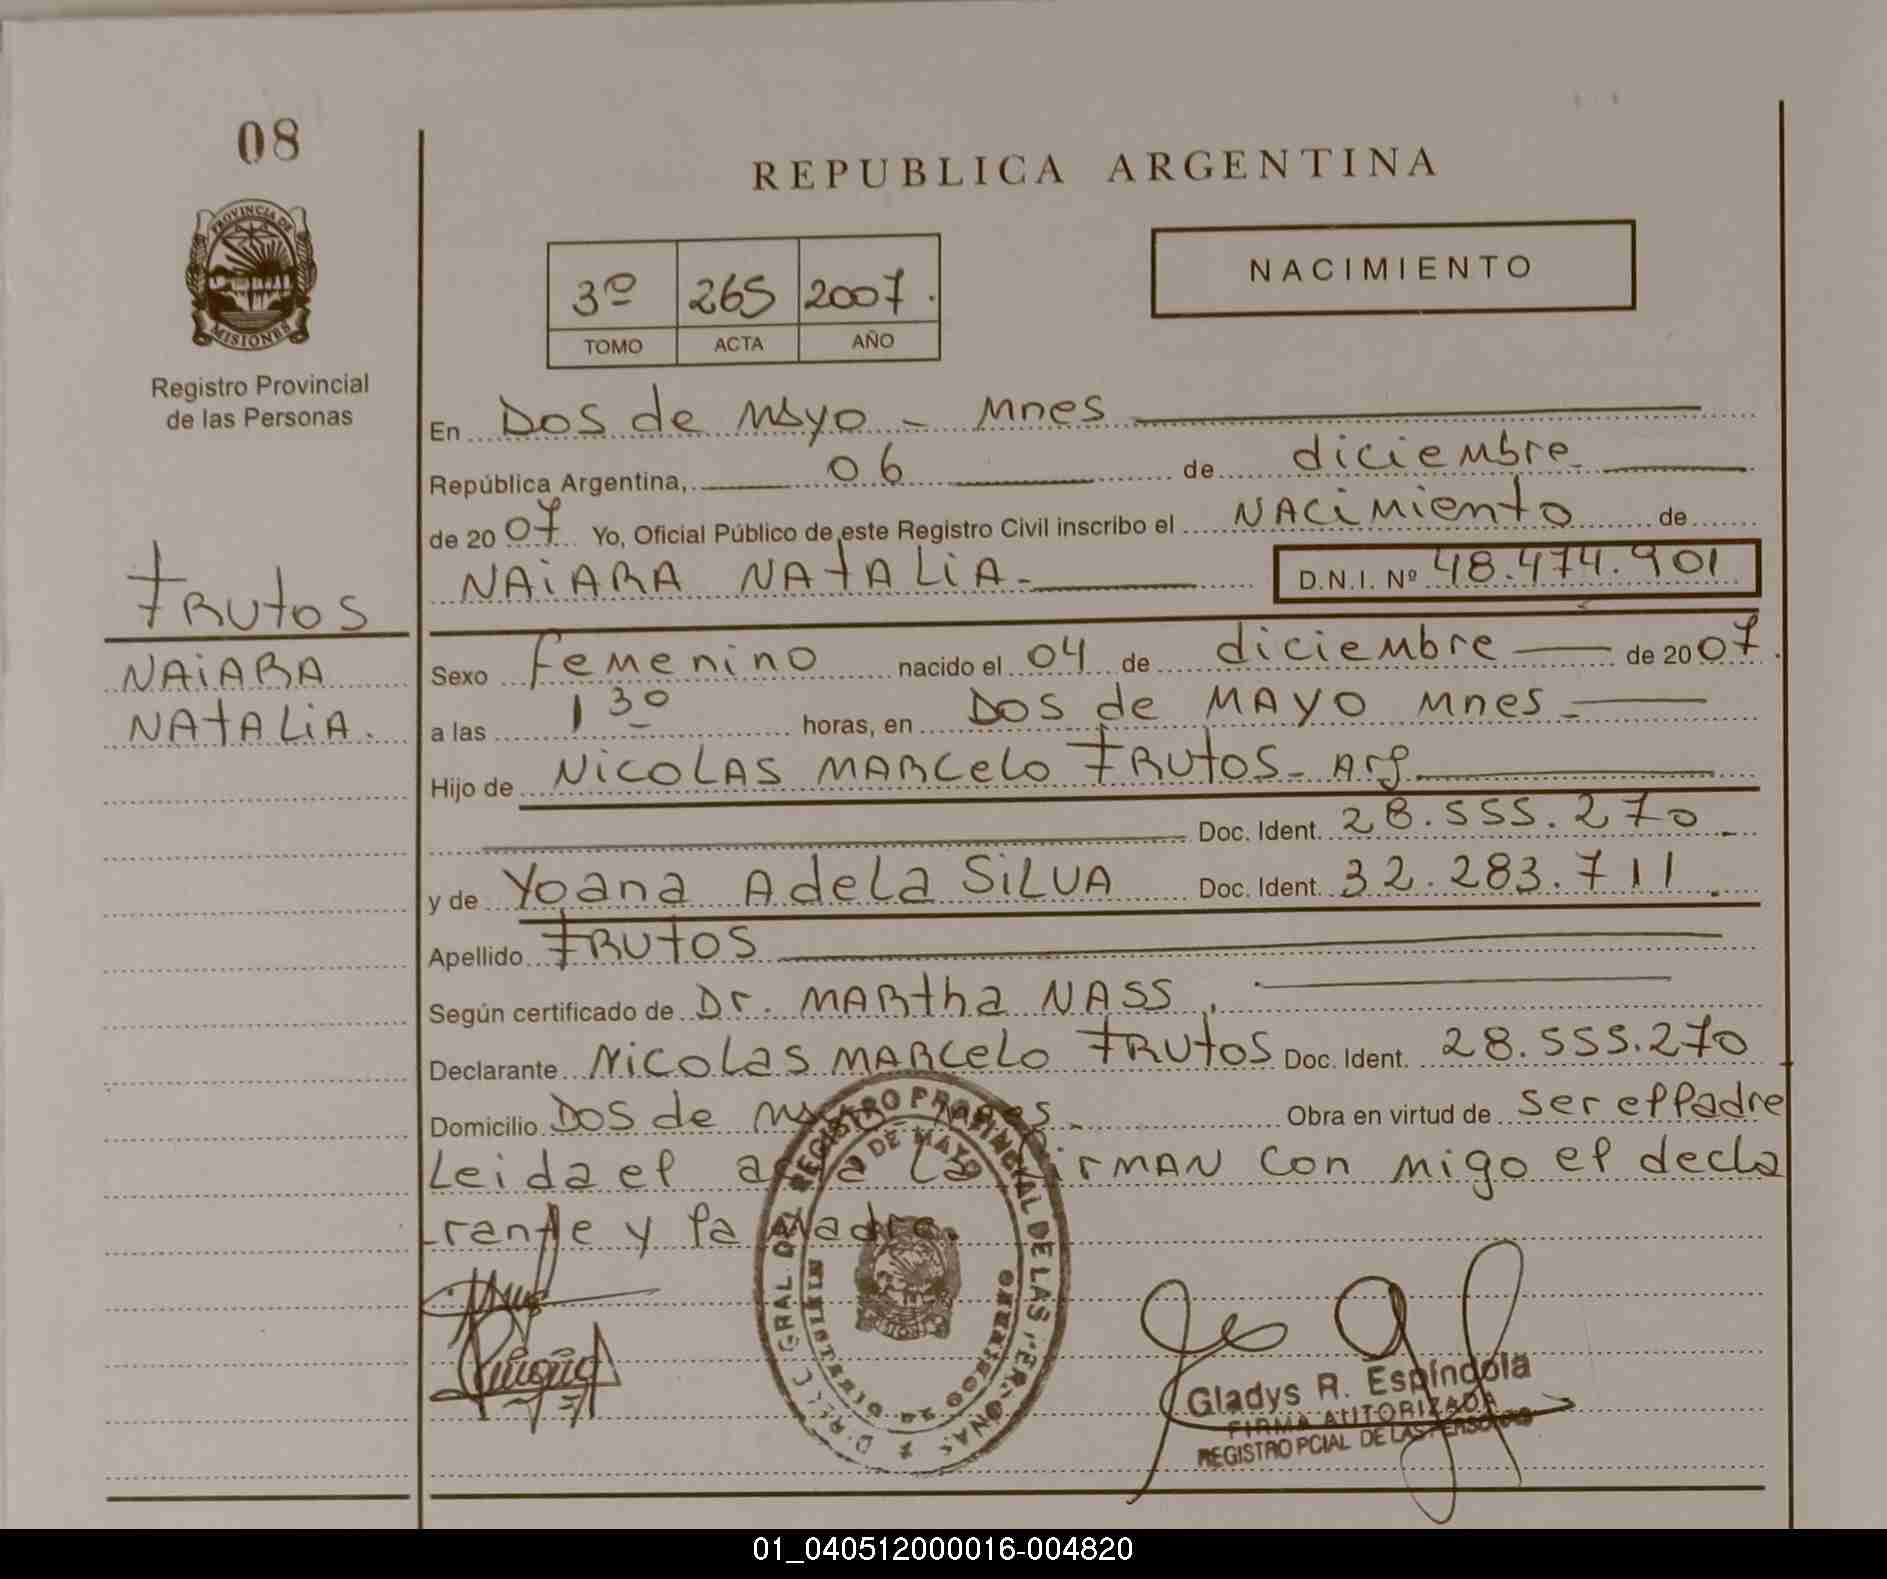 08
PROVINCIA DE
MISIONES
Registro Provincial
de las Personas
REPUBLICA ARGENTINA
NACIMIENTO
3º 265 2007.
TOMO ACTA AÑO
En Dos de Mayo - Mnes
República Argentina, 06 de diciembre
de 2007 Yo, Oficial Público de este Registro Civil inscribo el NACiMiento de
NAiARA NATALiA- D.N.I. Nº 48.474.901
FRUtos
NAiARA
NATALiA.
Sexo Femenino nacido el 04 de diciembre de 2007.
a las 1 30 horas, en Dos de MAYO Mnes-
Hijo de NicoLAS MARCeLo FRUtos- Arg
Doc. Ident. 28.555.270
y de Yoana AdeLa SiLVA Doc. Ident. 32.283.711.
Apellido FRUtos
Según certificado de Dr. MARtha NASS.
Declarante NicoLas MARCeLo FRUtos Doc. Ident. 28.555.270
Domicilio Dos de Mnes. Obra en virtud de ser el Padre
Leida el La firMAN con migo el decla
-rante y la Madre.
REGISTRO PROVINCIAL DE LAS PERSONAS
DE MAYO
MISIONES
Gladys R. Espíndola
FIRMA AUTORIZADA
REGISTRO PCIAL DE LAS PERSONAS
01_040512000016-004820